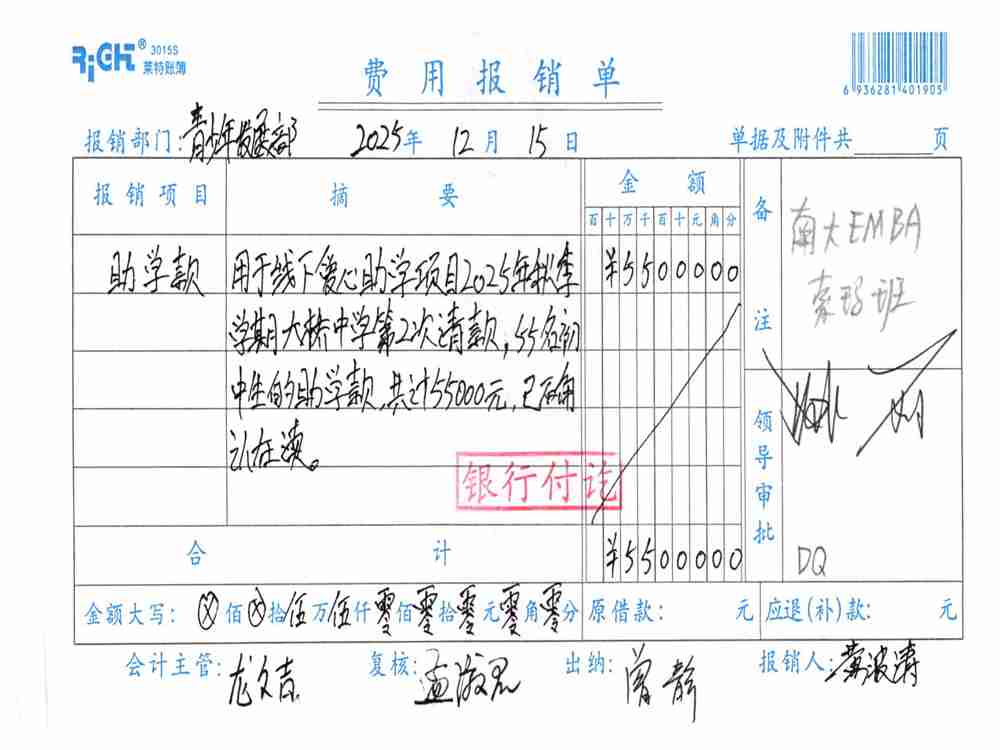 RiGHT® 3015S
莱特账簿
费用报销单
6 936281 401905
报销部门:青少年发展部 2025年12月15日 单据及附件共 页
报销项目 摘要 金额 备注
百十万千百十元角分
南大EMBA
助学款 用于线下爱心助学项目2025年秋季 ¥5500000
学期大桥中学第2次请款,55名初
中生的助学款,共计55000元,已
认在读。
银行付讫
领导审批
DQ
合计 ¥5500000
金额大写: ⊗佰⊗拾伍万伍仟零佰零拾零元零角零分 原借款: 元 应退(补)款: 元
会计主管:龙文吉 复核:孟淑君 出纳:曾静 报销人: